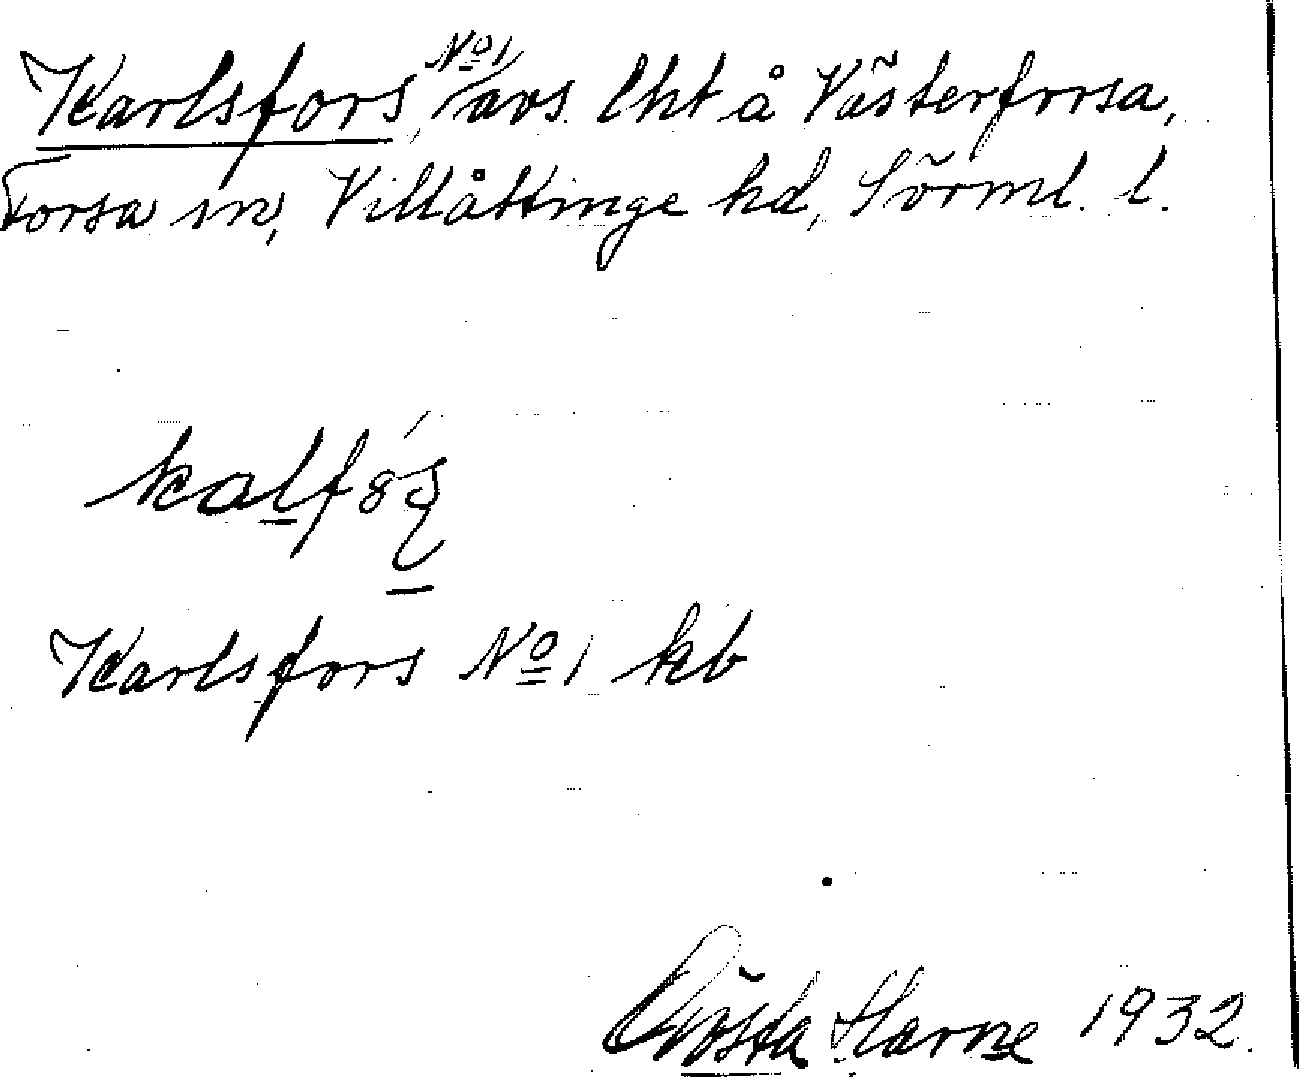 Karlsfors, No 1 avs. lht å Västerforsa,
Forsa sn, Villåttinge hd, Sörml. l.
Karlsfors No 1 kb
Gösta Harne 1932.